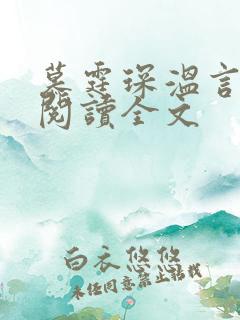 墓霆琛溫言
閱讀全文
白衣悠悠
未经同意禁止转载